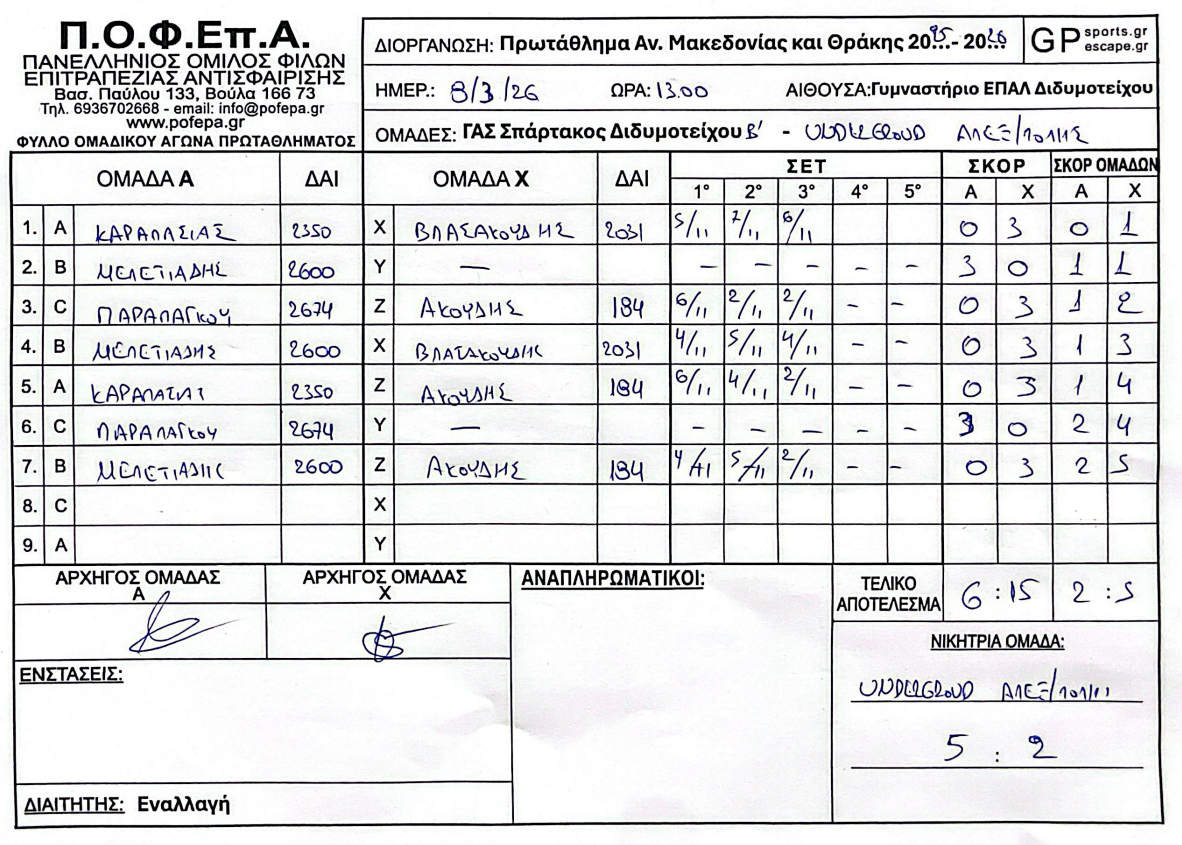 Π.Ο.Φ.Επ.Α.
ΠΑΝΕΛΛΗΝΙΟΣ ΟΜΙΛΟΣ ΦΙΛΩΝ
ΕΠΙΤΡΑΠΕΖΙΑΣ ΑΝΤΙΣΦΑΙΡΙΣΗΣ
Βασ. Παύλου 133, Βούλα 166 73
Τηλ. 6936702668 - email: info@pofepa.gr
www.pofepa.gr
ΦΥΛΛΟ ΟΜΑΔΙΚΟΥ ΑΓΩΝΑ ΠΡΩΤΑΘΛΗΜΑΤΟΣ
ΔΙΟΡΓΑΝΩΣΗ: Πρωτάθλημα Αν. Μακεδονίας και Θράκης 2025 - 2026
GP sports.gr
escape.gr
ΗΜΕΡ.: 8/3/26 ΩΡΑ: 13.00 ΑΙΘΟΥΣΑ: Γυμναστήριο ΕΠΑΛ Διδυμοτείχου
ΟΜΑΔΕΣ: ΓΑΣ Σπάρτακος Διδυμοτείχου Β' - UNDERGROUD ΑΛΕΞ/ΠΟΛΗΣ
ΟΜΑΔΑ Α ΔΑΙ ΟΜΑΔΑ Χ ΔΑΙ ΣΕΤ ΣΚΟΡ ΣΚΟΡ ΟΜΑΔΩΝ
1° 2° 3° 4° 5° Α Χ Α Χ
1. A 2350 X 2031 5/11 7/11 6/11 0 3 0 1
2. B ΜΕΛΕΤΙΑΔΗΣ 2600 Y — – – – – – 3 0 1 1
3. C 2674 Z ΑΚΟΥΔΗΣ 184 6/11 2/11 2/11 – – 0 3 1 2
4. B ΜΕΛΕΤΙΑΔΗΣ 2600 X 2031 4/11 5/11 4/11 – – 0 3 1 3
5. A 2350 Z ΑΚΟΥΔΗΣ 184 6/11 4/11 2/11 – – 0 3 1 4
6. C 2674 Y — – – – – – 3 0 2 4
7. B ΜΕΛΕΤΙΑΔΗΣ 2600 Z ΑΚΟΥΔΗΣ 184 4/11 5/11 2/11 – – 0 3 2 5
8. C X
9. A Y
ΑΡΧΗΓΟΣ ΟΜΑΔΑΣ Α
ΑΡΧΗΓΟΣ ΟΜΑΔΑΣ Χ
ΑΝΑΠΛΗΡΩΜΑΤΙΚΟΙ:
ΤΕΛΙΚΟ ΑΠΟΤΕΛΕΣΜΑ 6:15 2:5
ΝΙΚΗΤΡΙΑ ΟΜΑΔΑ:
UNDERGROUD ΑΛΕΞ/ΠΟΛΗ
5 : 2
ΕΝΣΤΑΣΕΙΣ:
ΔΙΑΙΤΗΤΗΣ: Εναλλαγή